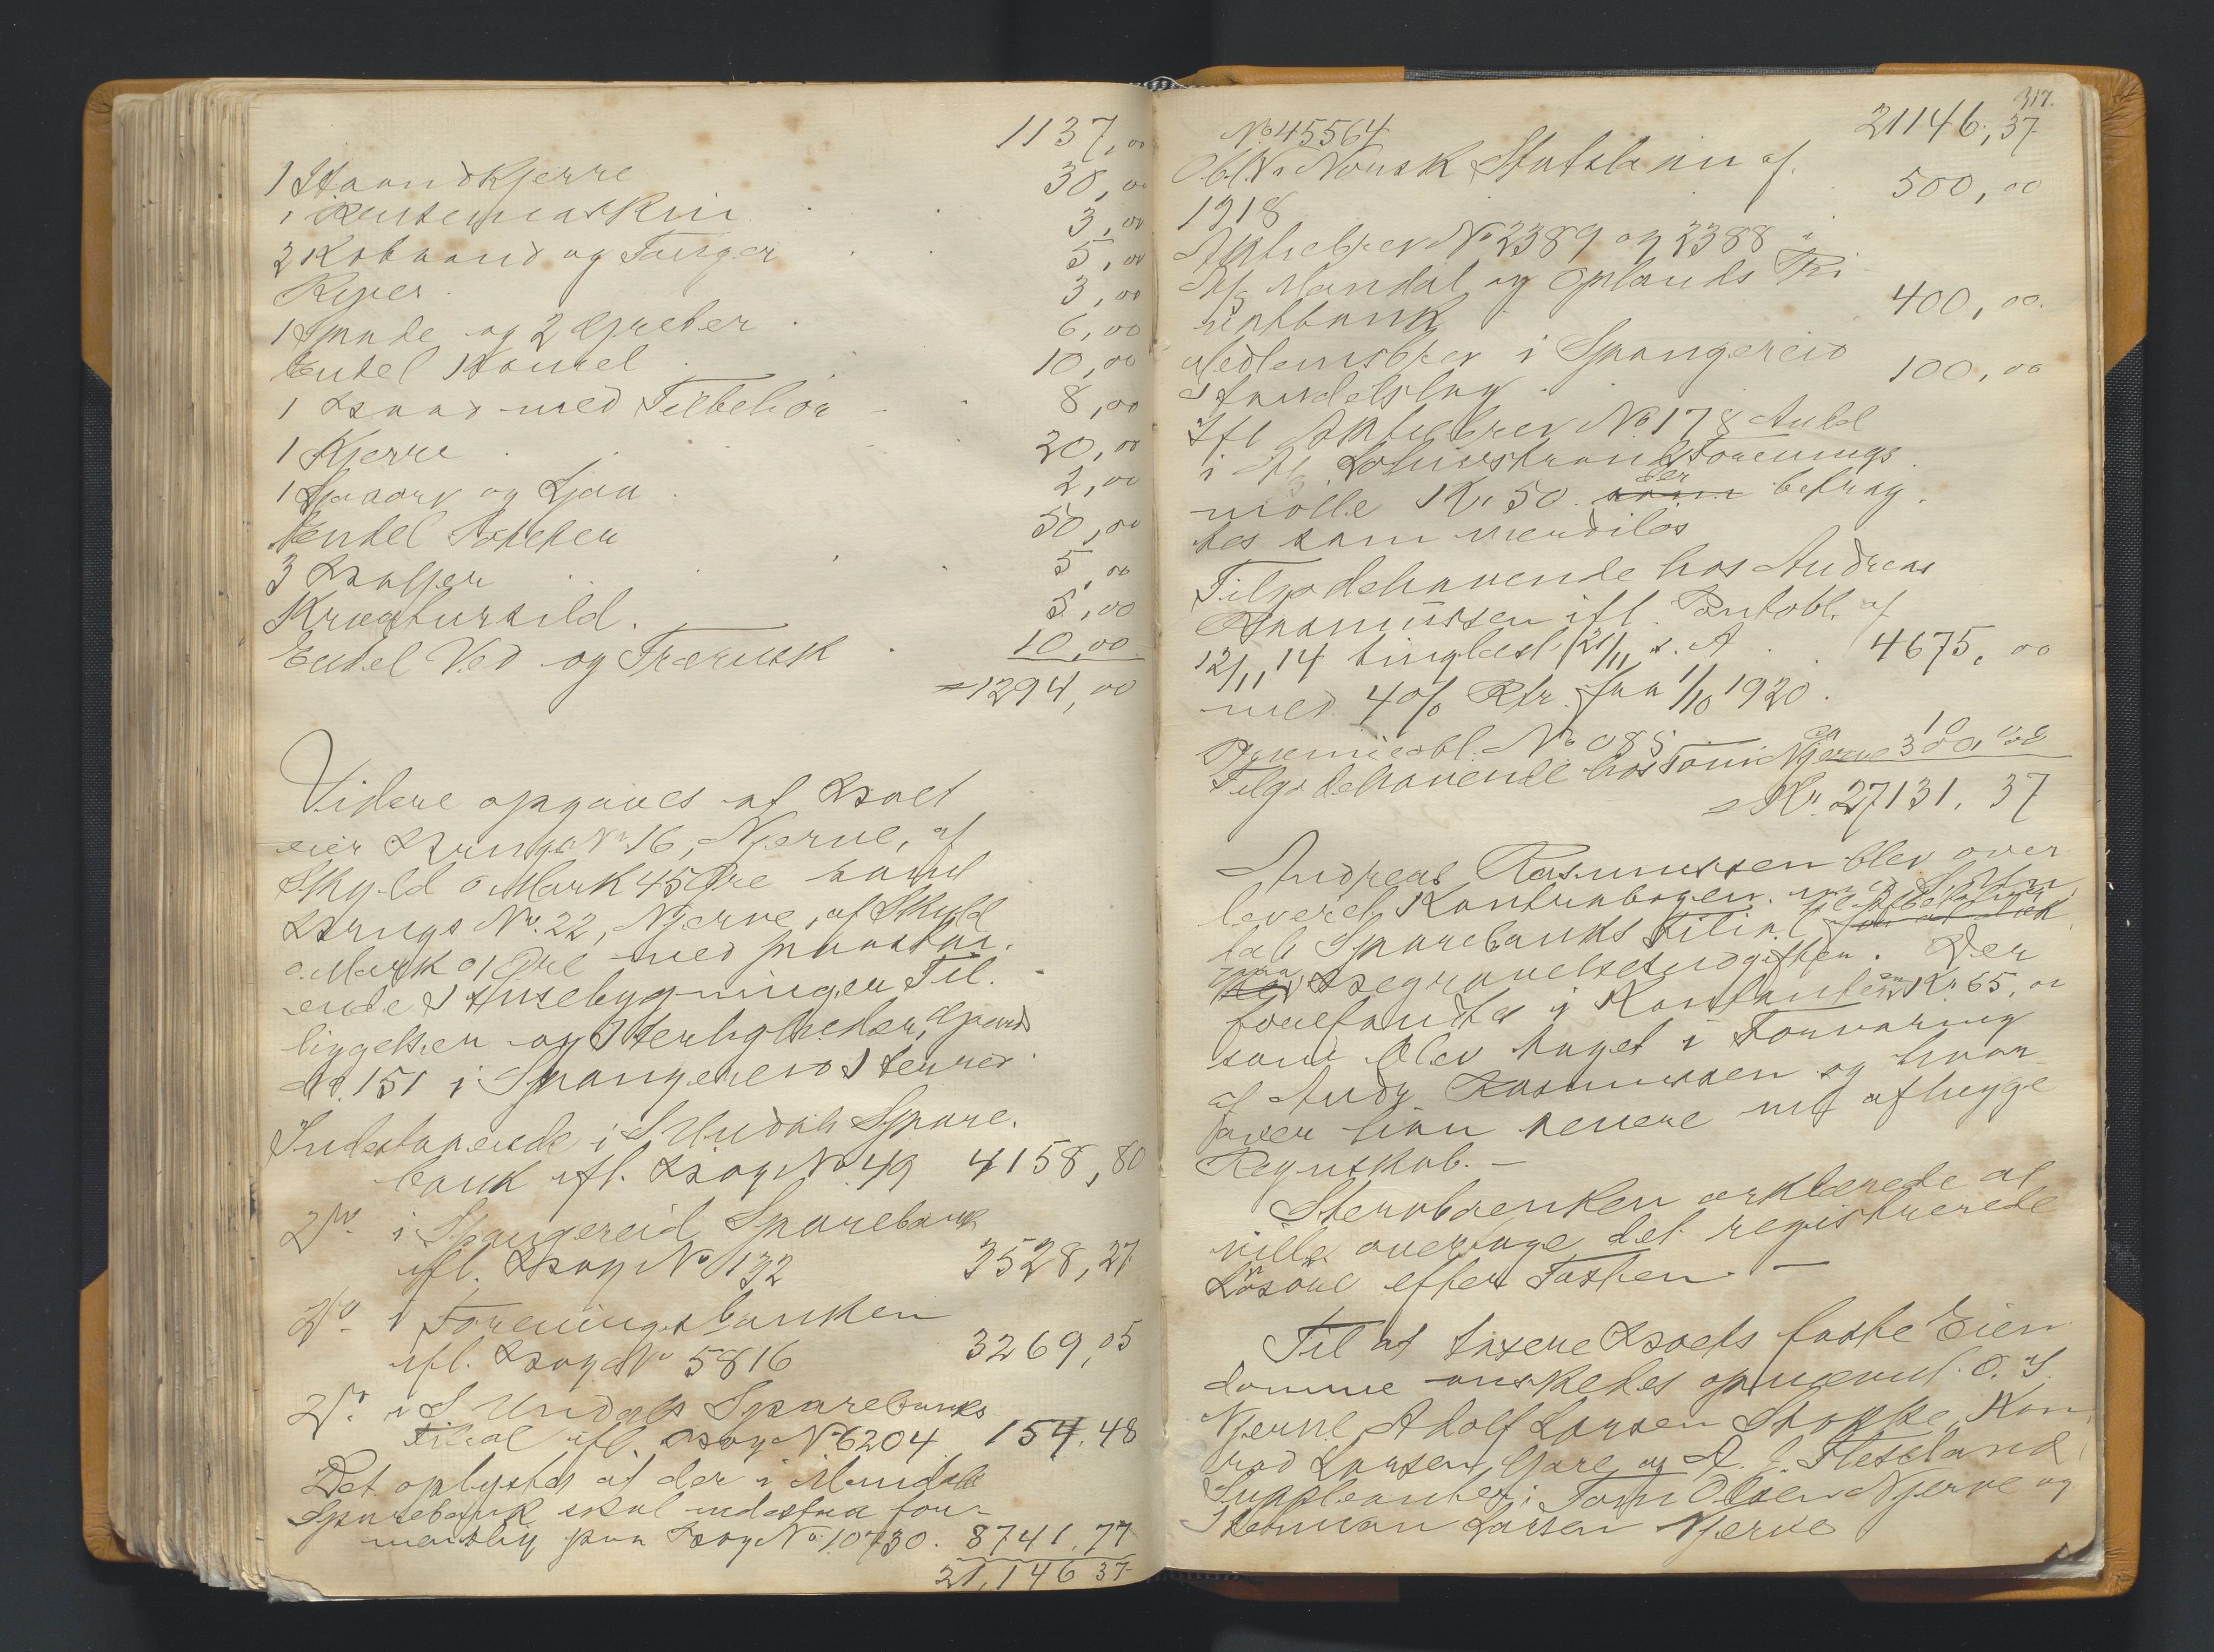 1137,00
1 Haandkjerre 30,00
1 Rensemaskin 3,00
2 Kobaand og Tønger 5,00
Kiper 3,00
1 Spade og 2 Græber 6,00
Endel Hamel 10,00
1 Baad med Tilbehør 8,00
1 Kjerre 20,00
1 Ljaaorv og Ljaa 2,00
Endel Poteter 50,00
3 Baljer 5,00
Kreaturkild. 5,00
Endel Ved og Trærusk 10,00
= 1294,00
Videre opgaves at Boet
eier Brugs No. 16, Njerve, af
Skyld 0 Mark 45 Øre samt
Brugs No. 22, Njerve, af Skyld
0 Mark 01 Øre med paastaa-
ende Husebygninger, Til-
liggelser og Herligheder, Gaards
No. 151 i Spangereid Herred.
Indestaaende i S. Undals Spare-
bank ifl. Bog No. 49 4158,80
Do. i Spangereid Sparebank
ifl. Bog No 132 3528,27
Do. i Foreningsbanken
ifl. Bog No 5816 3269,05
Do. i S. Undals Sparebanks
Filial ifl. Bog No 6204 1544,48
Det oplystes at der i Mandals
Sparebank skal indestaa for-
mentlig paa Bog No. 10730. 8741,77
21,146 37
317.
No 45564 21146,37
Obl. Norsk Statslaan af
1918 500,00
Aktiebrev No 2389 og 2388 i
A/S Mandal og Oplands Pri-
vatbank 400,00
Medlemsbrev i Spangereid
Handelslag 100,00
Ifl Aktiebrev No 178 Anbl
i A/S Foreningsmølle
mølle Kr. 50. som der betrag-
tes som verdiløs
Tilgodehavende hos Andreas
Rasmussen ifl. Pantobl. af
12/11 14 tinglæst 21/11 s. A 4675,00
med 4 % Rtr. fra 1/10 1920.
Præmieobl. No 085 10
Tilgodehavende hos Tom Njerve ca 300,00
= Kr. 27131,37
Andreas Rasmussen blev over-
leveret Kontrabogen med S. Un-
dals Sparebanks Filial til Bestridelse
af Begravelsesudgiften. Der
forefandtes i Kontanter Kr. 65,00
som blev taget i Forvaring
af Andr. Rasmussen og hvor-
over han senere vil aflægge
Regnskab. —
Stervboenken erklærede at
ville overtage det registrerede
Løsøre efter Taxten. —
Til at taxere Boets faste Eien-
domme ønskedes opnævnt O. T.
Njerve, Adolf Larsen Stokke, Kon-
rad Larsen Gare og A. J. Fleseland,
Suppleanter: Tom Olsen Njerve og
Herman Larsen Njerve